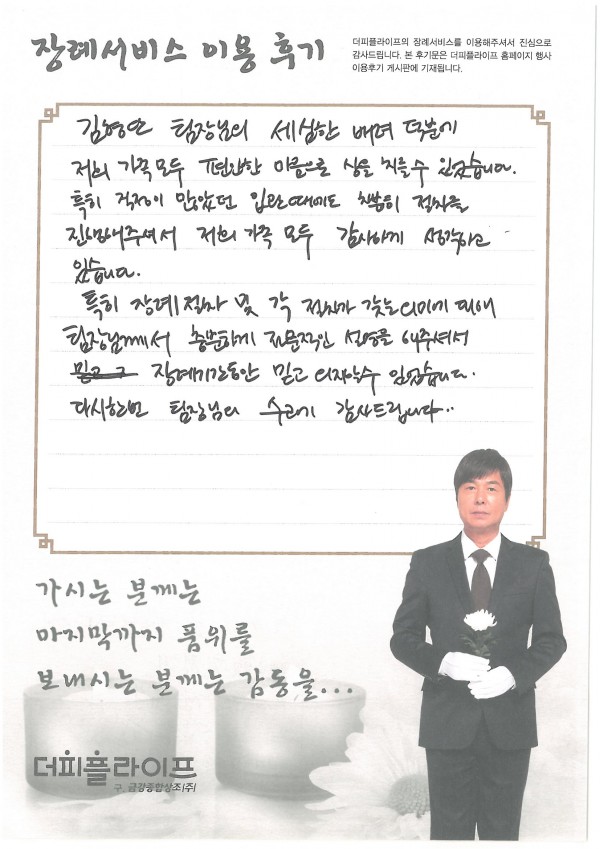 장례서비스 이용 후기
더피플라이프의 장례서비스를 이용해주셔서 진심으로
감사드립니다. 본 후기문은 더피플라이프 홈페이지 행사
이용후기 게시판에 기재됩니다.
김형연 팀장님의 세심한 배려 덕분에
저희 가족 모두 편안한 마음으로 상을 치를 수 있었습니다.
특히 걱정이 많았던 입관때에도 차분히 절차를
진행해주셔서 저희 가족 모두 감사하게 생각하고
있습니다.
특히 장례절차 및 각 절차가 갖는 의미에 대해
팀장님께서 충분하게 전문적인 설명을 해주셔서
장례기간동안 믿고 의지할수 있었습니다.
다시한번 팀장님의 수고에 감사드립니다..
가시는 분께는
마지막까지 품위를
보내시는 분께는 감동을...
더피플라이프
구. 금강종합상조(주)